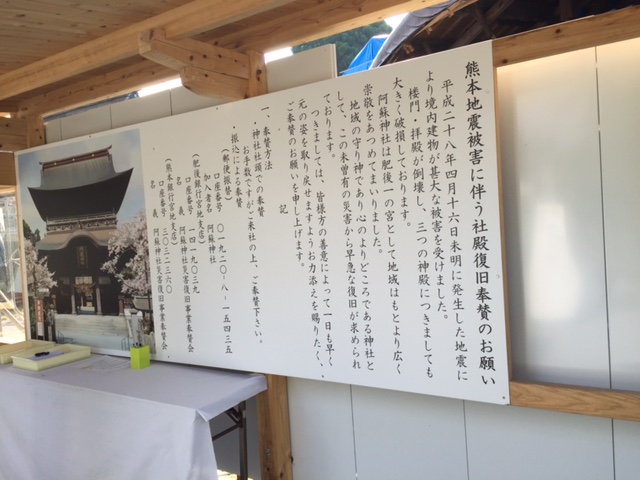 熊本地震被害に伴う社殿復旧奉賛のお願い
平成二十八年四月十六日未明に発生した地震に
より境内建物が甚大な被害を受けました。
楼門・拝殿が倒壊し、三つの神殿につきましても
大きく破損しております。
阿蘇神社は肥後一の宮として地域はもとより広く
崇敬をあつめてまいりました。
地域の守り神であり心のよりどころである神社と
して、この未曾有の災害から早急な復旧が求められ
ております。
つきましては、皆様方の善意によって一日も早く
元の姿を取り戻せますようお力添えを賜りたく、
ご奉賛のお願いを申し上げます。
記
一、奉賛方法
・神社社頭での奉賛
お手数ですがご来社の上、ご奉賛下さい。
・振込による奉賛
(郵便振替)
口座番号 〇一九二〇-八-一五四三五
加入者名 阿蘇神社
(肥後銀行宮地支店)
口座番号 一四一九〇三九
名義 阿蘇神社災害復旧事業奉賛会
(熊本銀行宮地支店)
口座番号 三〇三二三六〇
名義 阿蘇神社災害復旧事業奉賛会